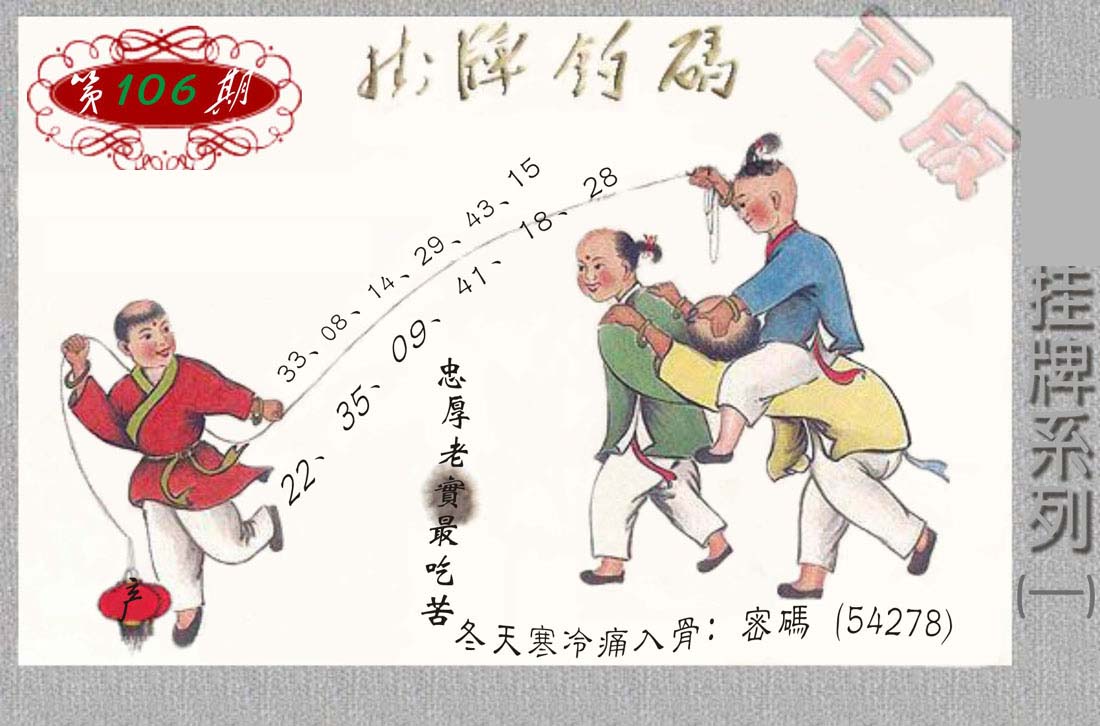 第106期
掛牌釣碼
正版
33、08、14、29、43、15
22、35、09、41、18、28
忠厚老實最吃苦
冬天寒冷痛入骨：密碼（54278）
产
挂牌系列(一)